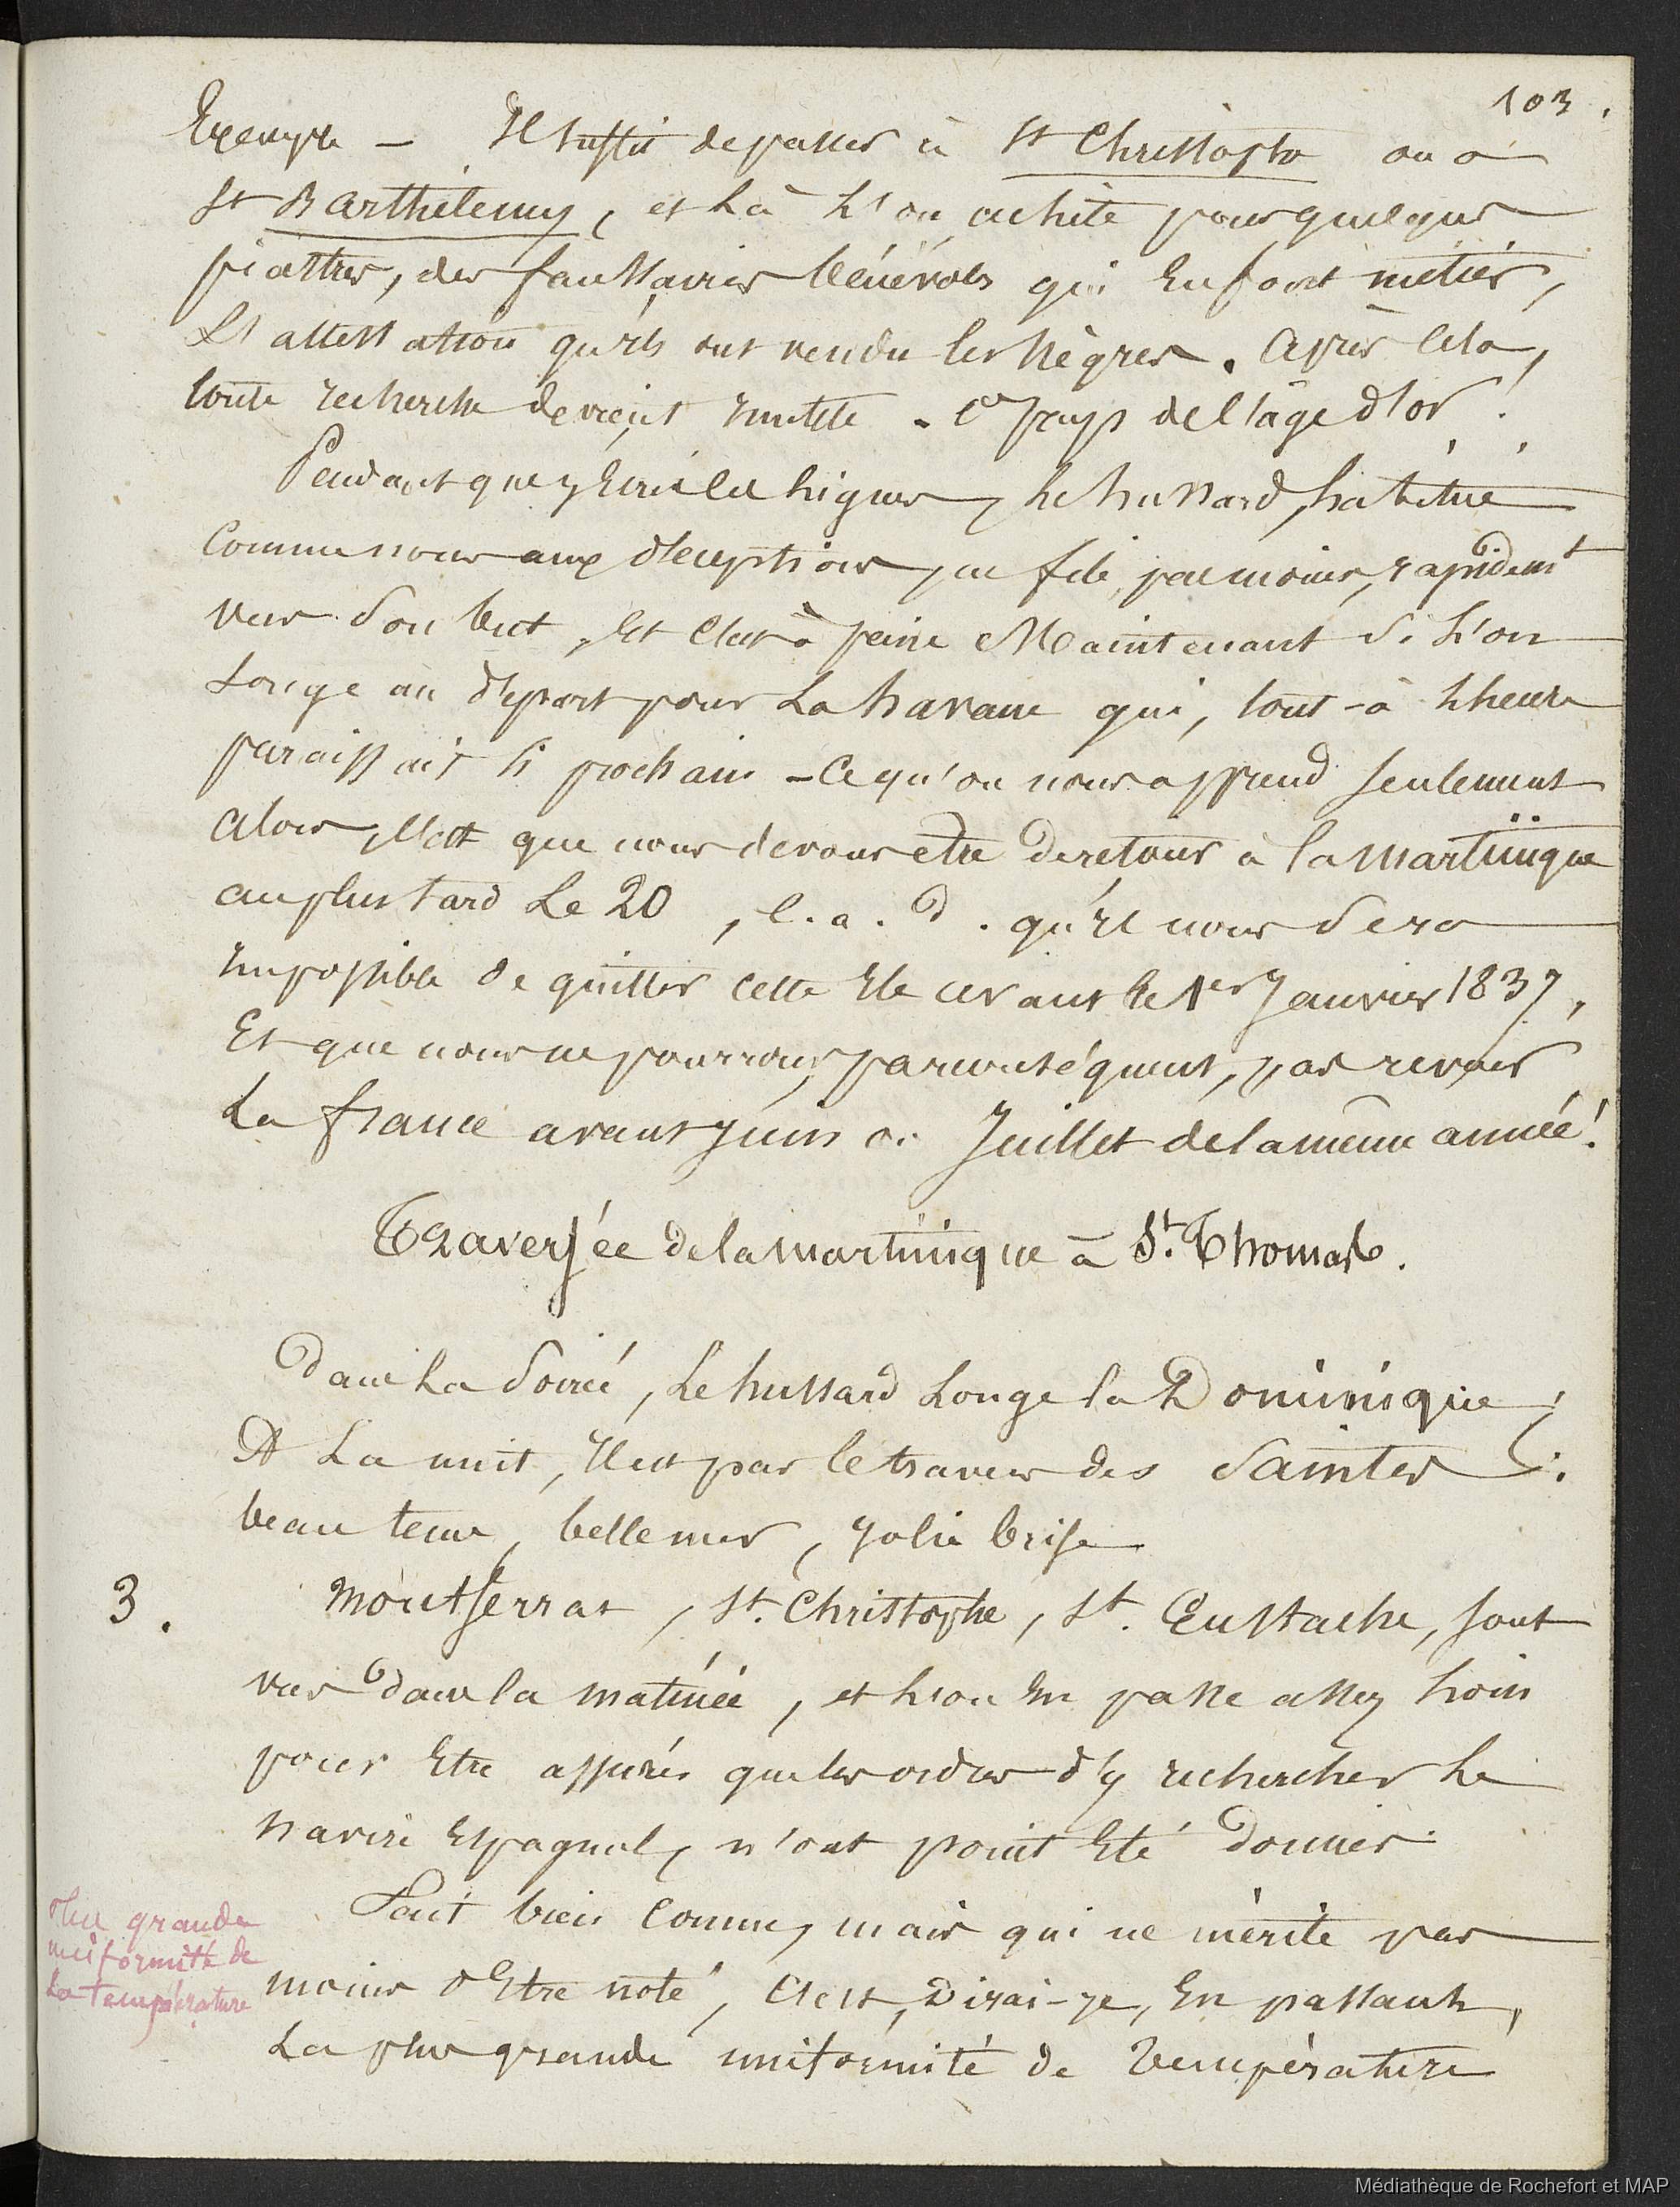 103.
Exemple — Il suffit de passer à St Christophe ou à
St Barthélemy, et là l'on achète pour quelques
piastres, des faussaires bénévoles qui en font métier,
L'attestation qu'ils ont vendu les nègres. Après cela,
toute recherche devient inutile. Ô pays de l'âge d'or!
Pendant que j'écris ces lignes, le hussard, habitué
comme nous aux déceptions, ne file, pas moins, rapidemt
vers son but, et c'est à peine Maintenant si l'on
songe au départ pour La havane qui, tout-à l'heure
paraissait si prochain — Ce qu'on nous apprend seulement
alors, c'est que nous devons être de retour à la martinique
au plus tard Le 20, c. a. d. qu'il nous sera
impossible de quitter cette Ile avant le 1er Janvier 1837,
Et que nous ne pourrons, par conséquent, pas revoir
La france avant Juin ou Juillet de la même année!
Traversée de la martinique à St. Thomas.
Dans la soirée, Le hussard Longe la Dominique;
A La nuit, Il est par le travers des Saintes.
beau tems, belle mer, jolie brise
3. montserrat, St. Christophe, St. Eustache, sont
vus dans la matinée, et l'on en passe assez loin
pour Etre assurés que les ordres d'y rechercher le
navire Espagnol, n'ont point Eté donnés.
Plus grande
uniformité de
La température
Fait bien connu, mais qui ne mérite pas
moins d'Etre noté, C'est, Dirai-je, En passant,
La plus grande uniformité de température
Médiathèque de Rochefort et MAP